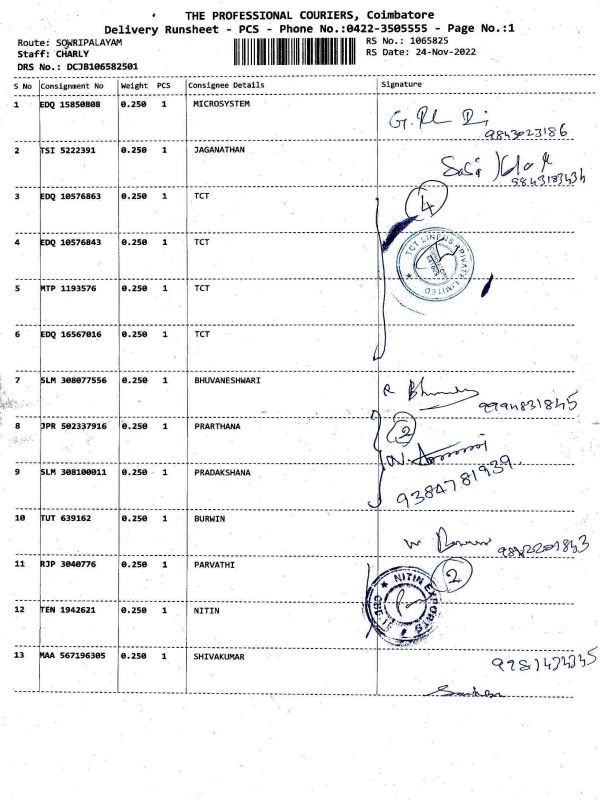 THE PROFESSIONAL COURIERS, Coimbatore
Delivery Runsheet - PCS - Phone No.:0422-3505555 - Page No.:1
Route: SOWRIPALAYAM
RS No.: 1065825
Staff: CHARLY
RS Date: 24-Nov-2022
DRS No.: DCJB106582501
S No Consignment No Weight PCS Consignee Details Signature
1 EDQ 15850808 0.250 1 MICROSYSTEM
9843023186
2 TSI 5222391 0.250 1 JAGANATHAN
9843183434
3 EDQ 10576863 0.250 1 TCT
4
4 EDQ 10576843 0.250 1 TCT
TCT LINERS PRIVATE LIMITED
5 MTP 1193576 0.250 1 TCT
6 EDQ 16567016 0.250 1 TCT
7 SLM 308077556 0.250 1 BHUVANESHWARI
9994831845
8 JPR 502337916 0.250 1 PRARTHANA
2
9 SLM 308100011 0.250 1 PRADAKSHANA
9384781939
10 TUT 639162 0.250 1 BURWIN
11 RJP 3040776 0.250 1 PARVATHI
2
NITIN EXPORTS
12 TEN 1942621 0.250 1 NITIN
13 MAA 567196305 0.250 1 SHIVAKUMAR